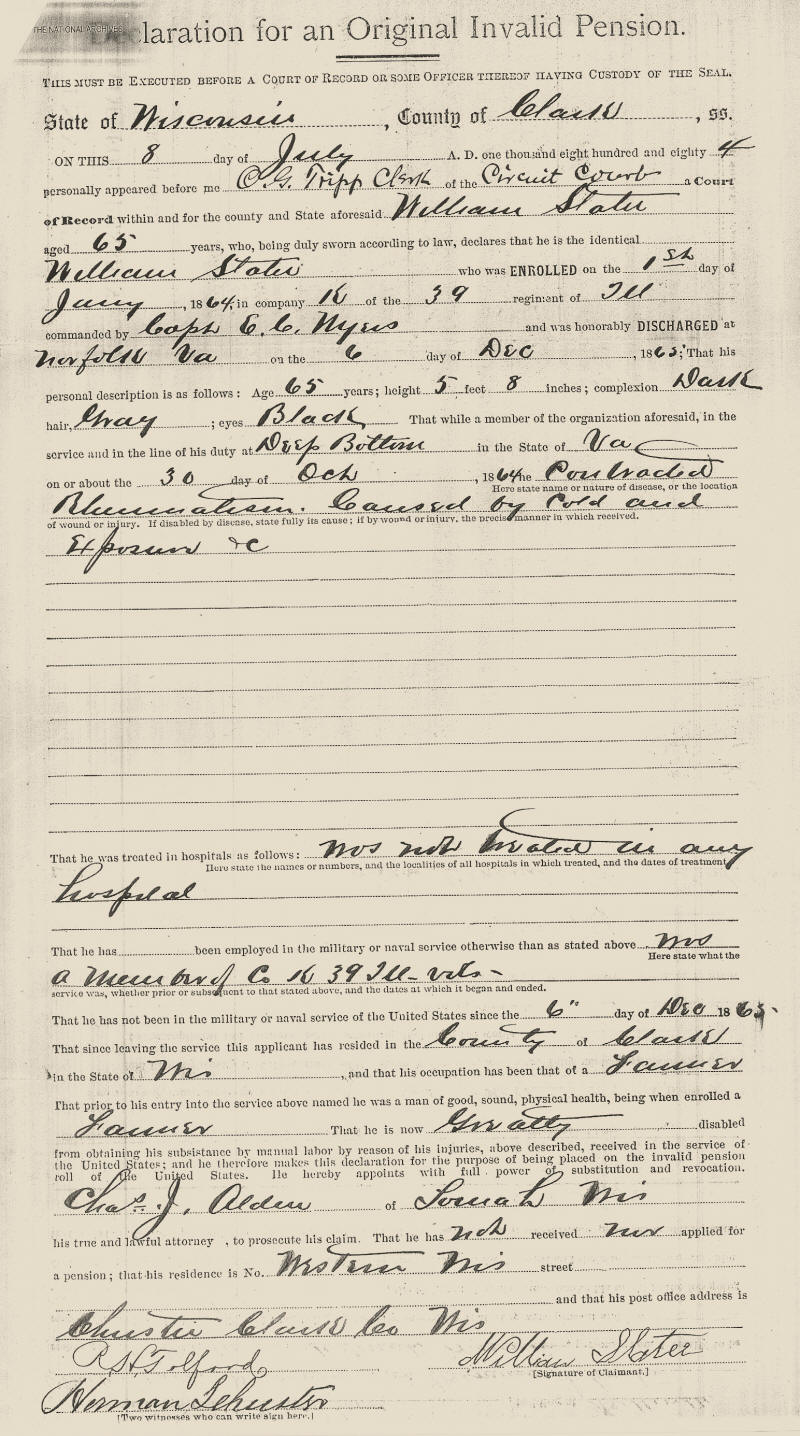 THE NATIONAL ARCHIVES
Declaration for an Original Invalid Pension.
THIS MUST BE EXECUTED BEFORE A COURT OF RECORD OR SOME OFFICER THEREOF HAVING CUSTODY OF THE SEAL.
State of Wisconsin, County of Clark, ss.
ON THIS 8 day of July A. D. one thousand eight hundred and eighty 4
personally appeared before me C. G. Tripp Clerk of the Circuit Court a Court
of Record within and for the county and State aforesaid William Slater
aged 65 years, who, being duly sworn according to law, declares that he is the identical
William Slater who was ENROLLED on the 1st day of
Juny, 1864, in company K of the 39 regiment of Ill
commanded by Capt E. C. Myers and was honorably DISCHARGED at
Norfolk Va on the 6 day of Dec, 1865; That his
personal description is as follows: Age 65 years; height 5 feet 8 inches; complexion Dark
hair, Gray; eyes Black That while a member of the organization aforesaid, in the
service and in the line of his duty at Deep Bottom in the State of Va
on or about the 30 day of Oct, 1864 he Contracted
Here state name or nature of disease, or the location
Rheumatism. Caused by Cold and
of wound or injury. If disabled by disease, state fully its cause; if by wound or injury, the precise manner in which received.
Exposure &c
That he was treated in hospitals as follows: was not treated in any
Here state the names or numbers, and the localities of all hospitals in which treated, and the dates of treatment
hospital
That he has been employed in the military or naval service otherwise than as stated above was
Here state what the
a Member of Co K 39 Ill- vols -
service was, whether prior or subsequent to that stated above, and the dates at which it began and ended.
That he has not been in the military or naval service of the United States since the 6" day of Dec 1865.
That since leaving the service this applicant has resided in the County of Clark
in the State of Wis, and that his occupation has been that of a Farmer
That prior to his entry into the service above named he was a man of good, sound, physical health, being when enrolled a
Farmer That he is now Greatly disabled
from obtaining his subsistance by manual labor by reason of his injuries, above described, received in the service of
the United States; and he therefore makes this declaration for the purpose of being placed on the invalid pension
roll of the United States. He hereby appoints with full power of substitution and revocation.
Chas. J. Alden of Tomah Wis
his true and lawful attorney , to prosecute his claim. That he has not received nor applied for
a pension; that his residence is No. Western Wis street
and that his post office address is
Christie Clark Co Wis
R. H. Tolford William Slater
[Signature of Claimant.]
Herman Schuster
[Two witnesses who can write sign here.]